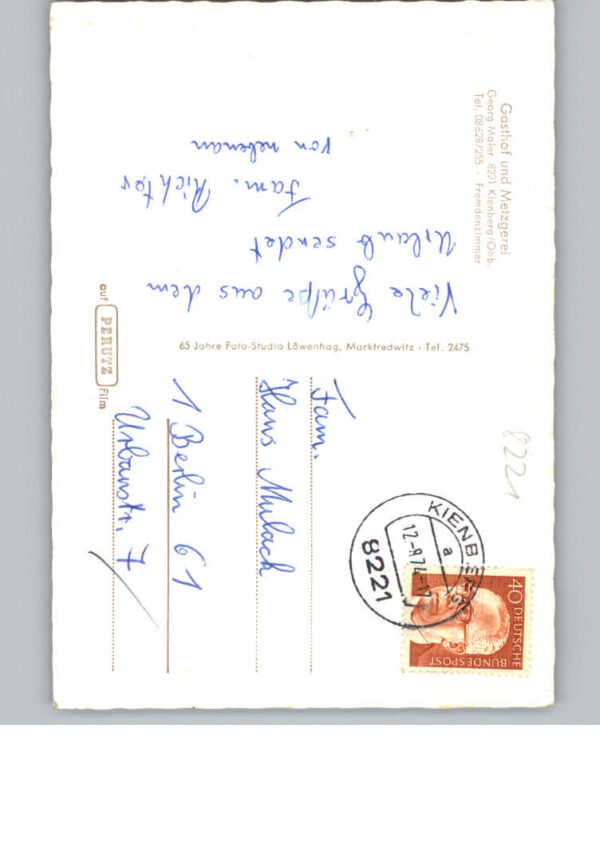 Gasthof und Metzgerei
Georg Maier, 8221 Kienberg/Obb.
Tel. 08628/255 · Fremdenzimmer
Viele Grüße aus dem
Urlaub sendet
Fam. Richter
von nebenan
65 Jahre Foto-Studio Löwenhag, Marktredwitz · Tel. 2475
auf PERUTZ Film
8221
KIENBERG
a
12.-8.74
8221
40 DEUTSCHE
BUNDESPOST
Fam.
Hans Mulach
1 Berlin 61
Urbanstr. 7